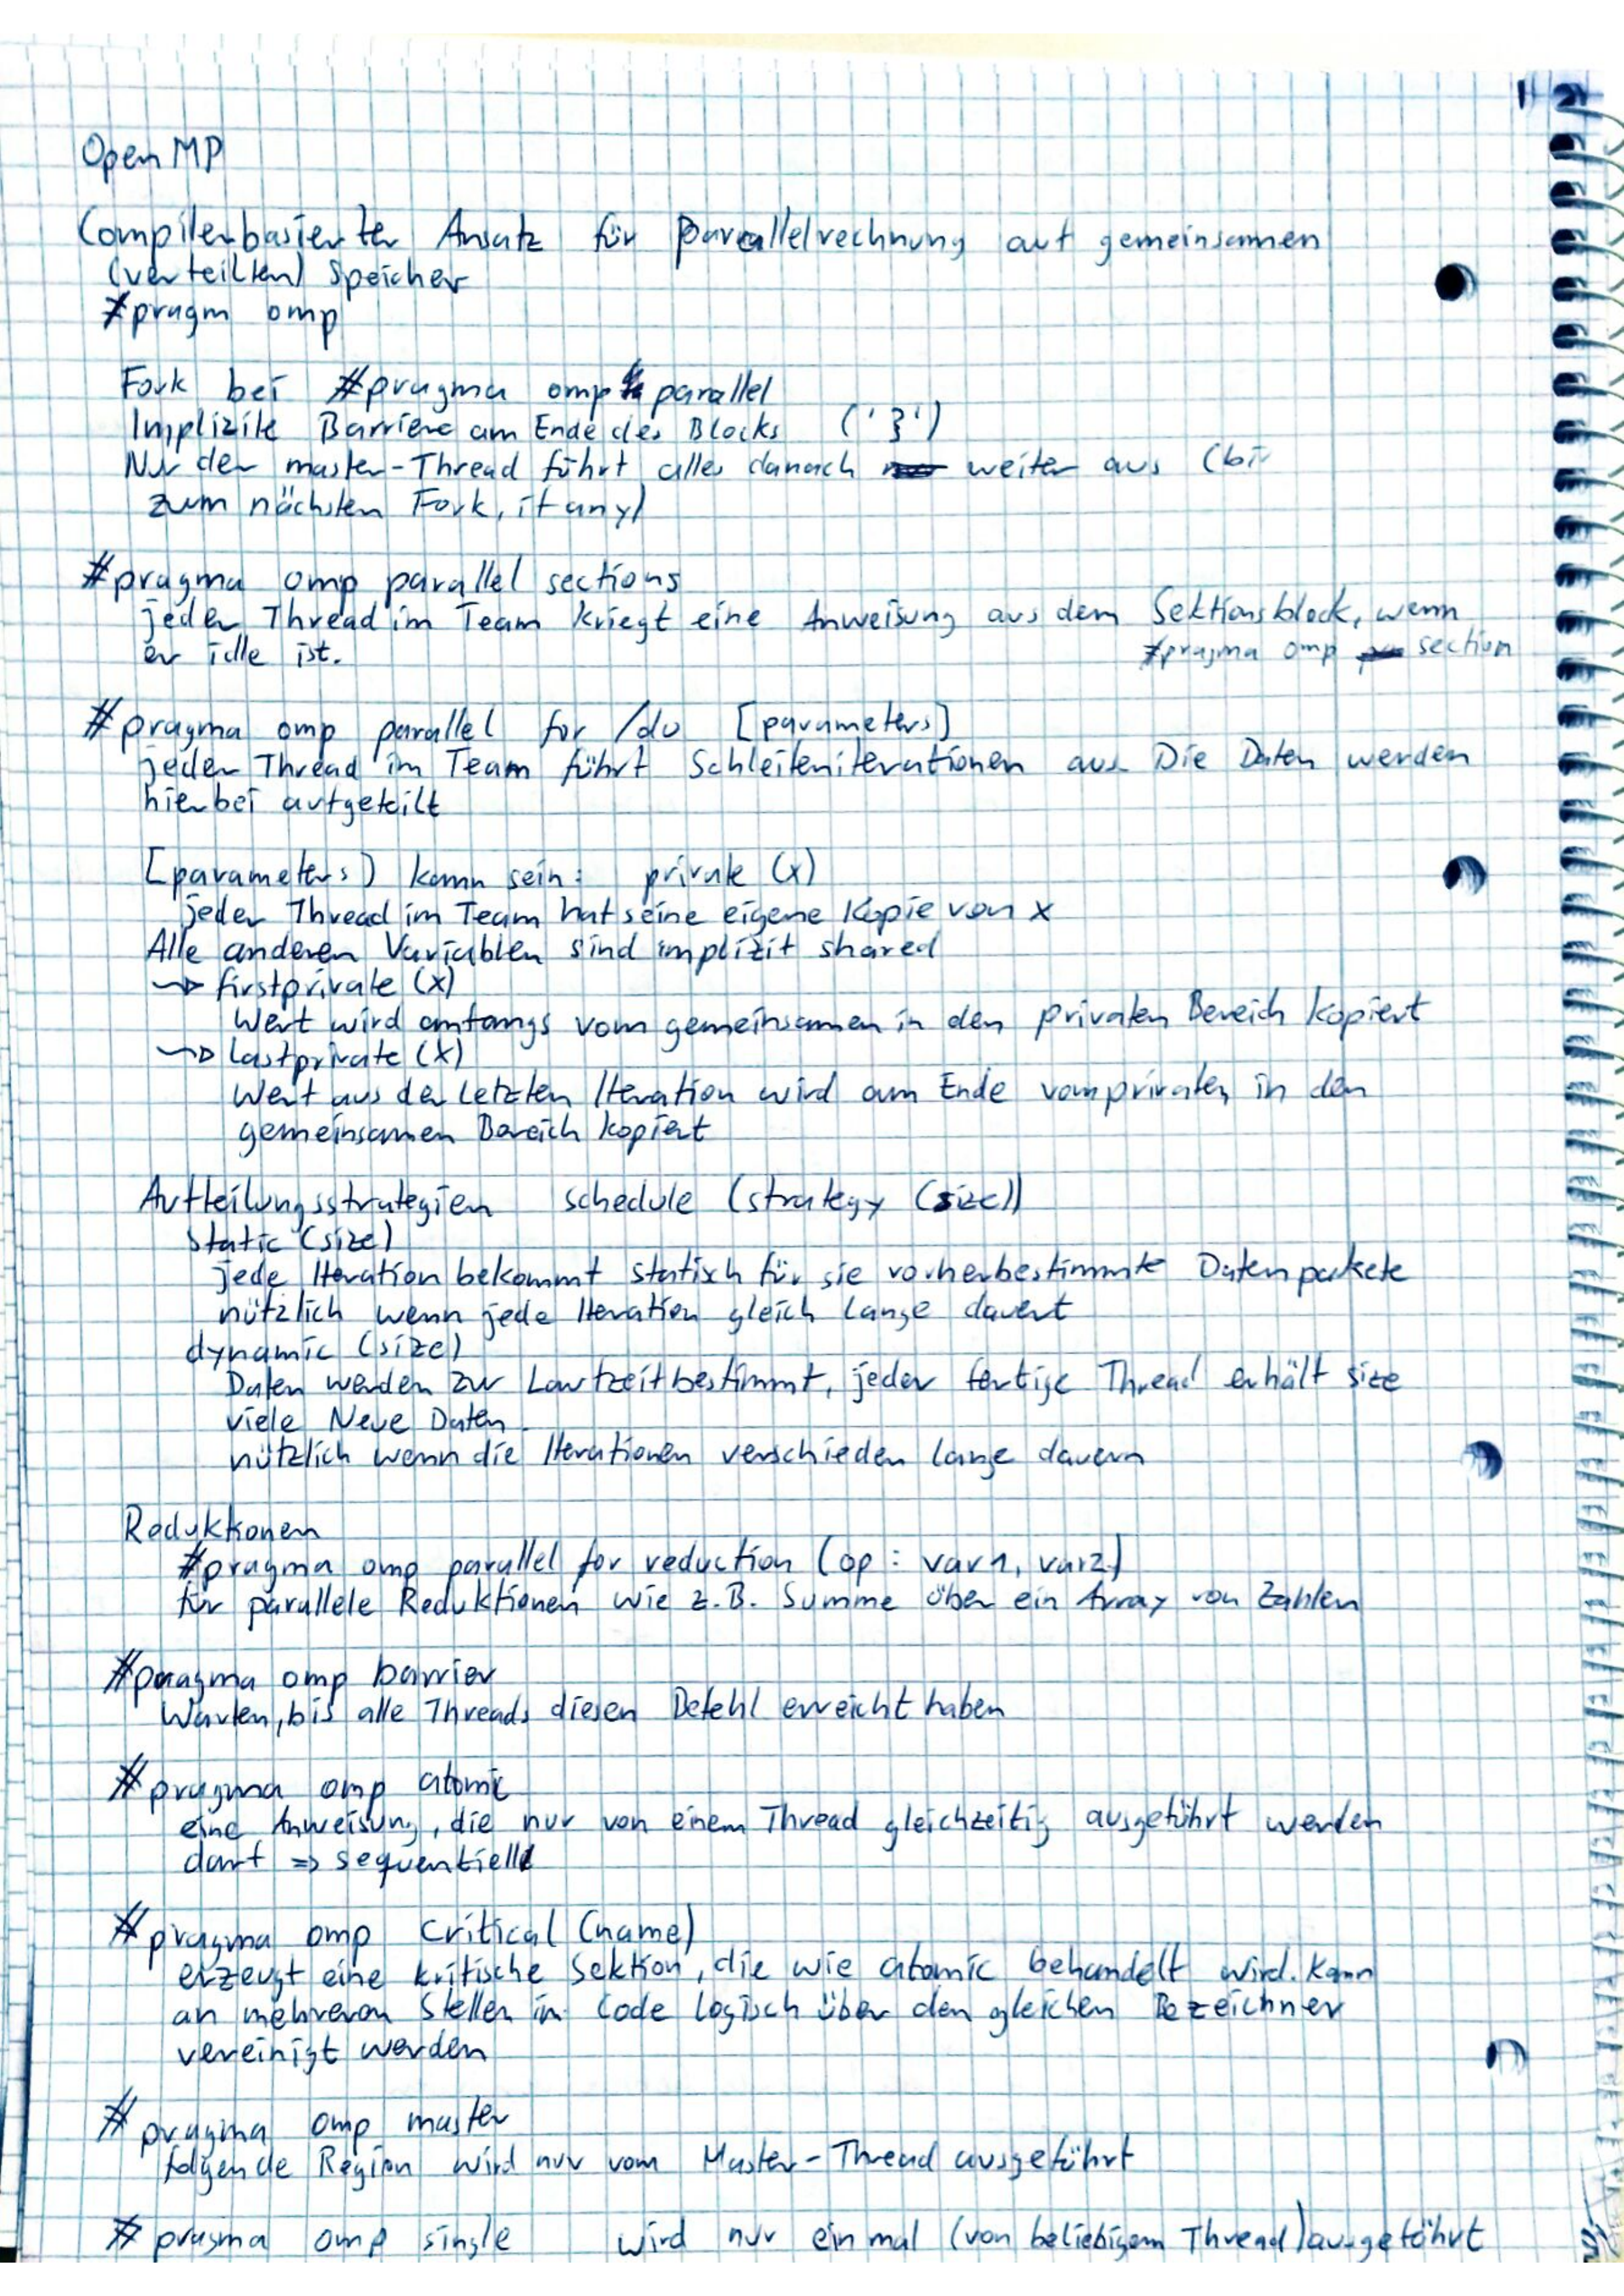 12
OpenMP
Compilerbasierter Ansatz für Parallelrechnung auf gemeinsamen
(verteilten) Speicher
#pragm omp
Fork bei #pragma omp parallel
Implizite Barriere am Ende des Blocks ('}')
Nur der master-Thread führt alles danach weiter aus (bis
zum nächsten Fork, if any)
#pragma omp parallel sections
jeder Thread im Team kriegt eine Anweisung aus dem Sektionsblock, wenn
er idle ist. #pragma omp section
#pragma omp parallel for /do [parameters]
jeder Thread im Team führt Schleifeniterationen aus Die Daten werden
hierbei aufgeteilt
[parameters] kann sein: private (x)
jeder Thread im Team hat seine eigene Kopie von x
Alle anderen Variablen sind implizit shared
~> firstprivate (x)
Wert wird anfangs vom gemeinsamen in den privaten Bereich kopiert
~> lastprivate (x)
Wert aus der letzten Iteration wird am Ende vom privaten in den
gemeinsamen Bereich kopiert
Aufteilungsstrategien schedule (strategy (size))
static (size)
jede Iteration bekommt statisch für sie vorherbestimmte Datenpakete
nützlich wenn jede Iteration gleich lange dauert
dynamic (size)
Daten werden zur Laufzeit bestimmt, jeder fertige Thread erhält size
viele Neue Daten.
nützlich wenn die Iterationen verschieden lange dauern
Reduktionen
#pragma omp parallel for reduction (op: var1, var2)
für parallele Reduktionen wie z.B. Summe über ein Array von Zahlen
#pragma omp barrier
Warten, bis alle Threads diesen Befehl erreicht haben
#pragma omp atomic
eine Anweisung, die nur von einem Thread gleichzeitig ausgeführt werden
darf => sequentiell
#pragma omp critical (name)
erzeugt eine kritische Sektion, die wie atomic behandelt wird. Kann
an mehreren Stellen im Code logisch über den gleichen Bezeichner
vereinigt werden
#pragma omp master
folgende Region wird nur vom Master-Thread ausgeführt
#pragma omp single wird nur einmal (von beliebigem Thread) ausgeführt